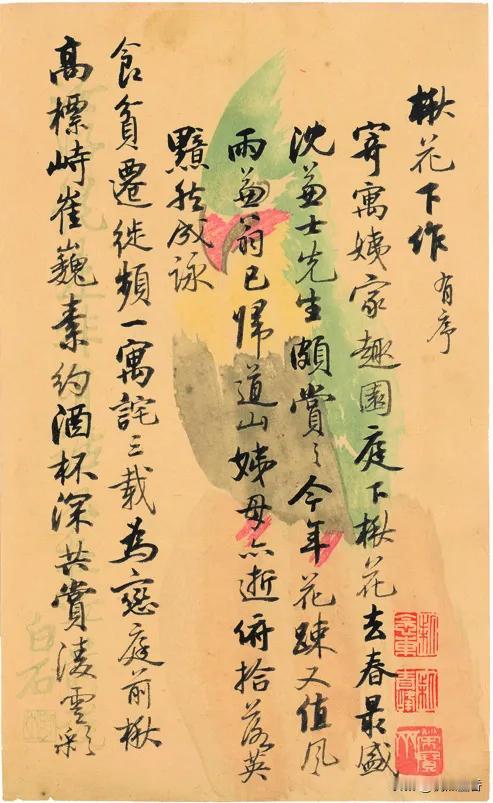 楸花下作 有序
寄寓姨家趣園庭下楸花去春最盛
沈兼士先生頗賞之今年花疎又值风
雨兼翁已帰道山姨母亦逝俯拾落英
黯然成詠
食貧遷徙頻一寓詫三載為戀庭前楸
高標峙崔巍素約酒杯深共賞凌雲彩
白石